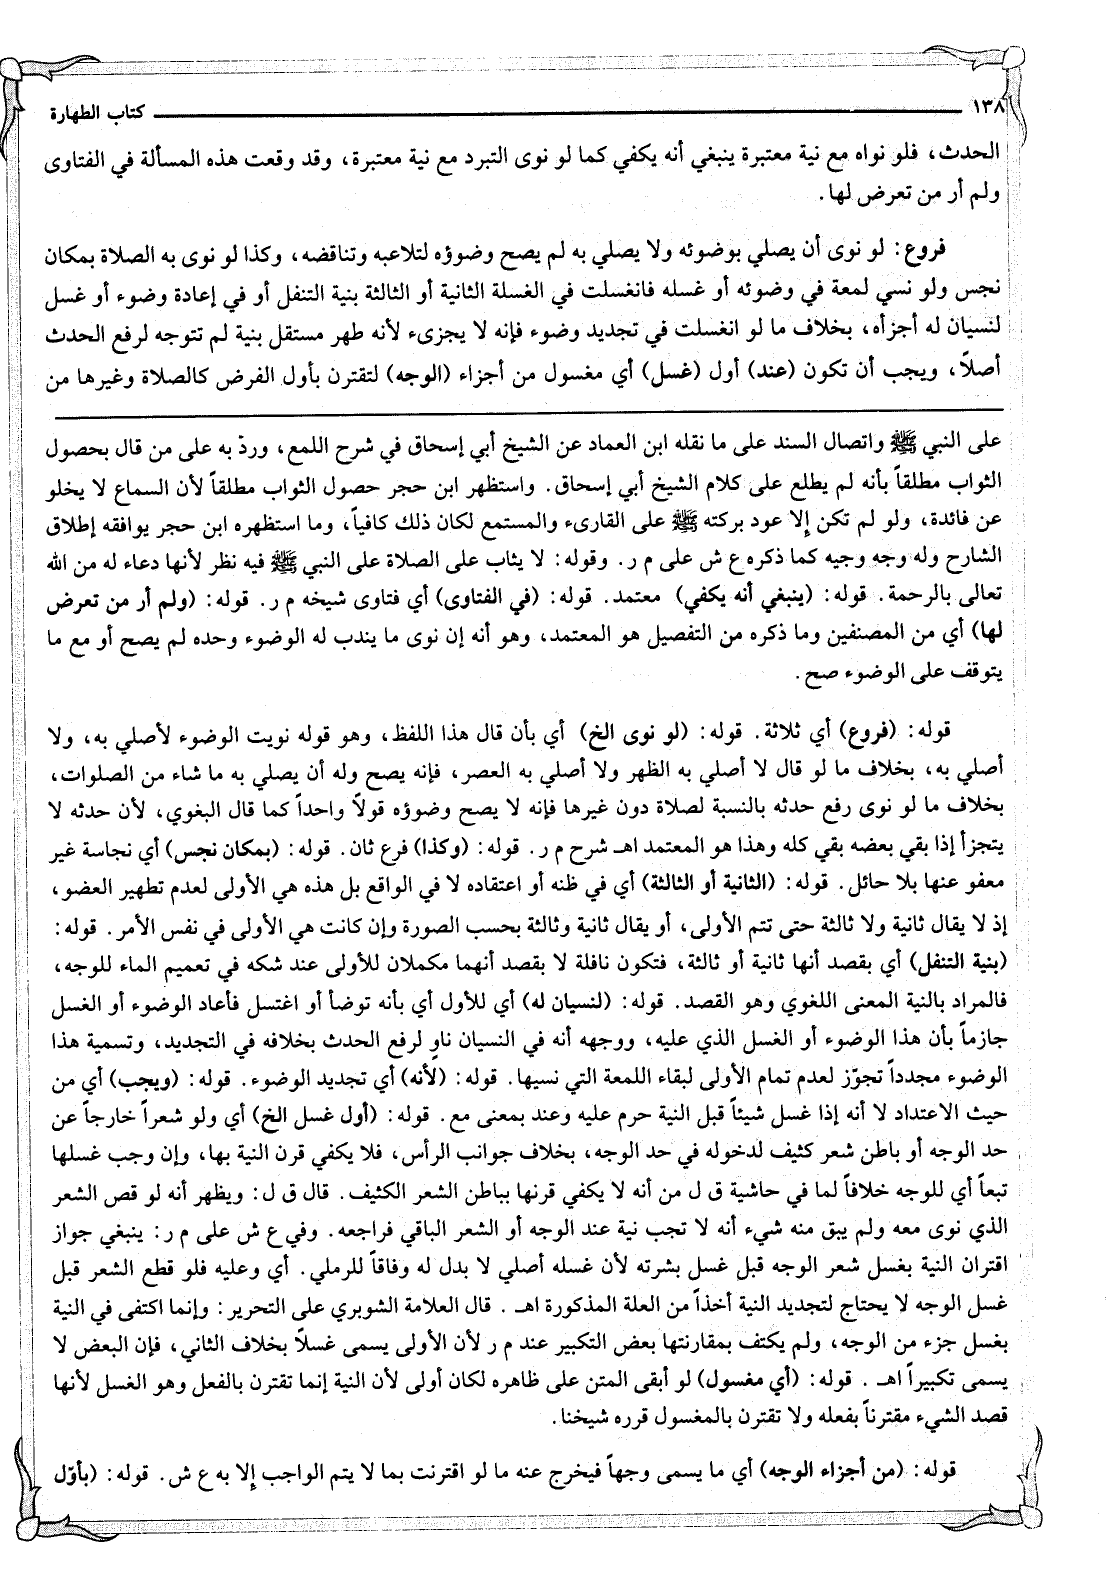 ١٣٨ كتاب الطهارة
الحدث، فلو نواه مع نية معتبرة ينبغي أنه يكفي كما لو نوى التبرد مع نية معتبرة، وقد وقعت هذه المسألة في الفتاوى
ولم أر من تعرض لها.
فروع: لو نوى أن يصلي بوضوئه ولا يصلي به لم يصح وضوؤه لتلاعبه وتناقضه، وكذا لو نوى به الصلاة بمكان
نجس ولو نسي لمعة في وضوئه أو غسله فانغسلت في الغسلة الثانية أو الثالثة بنية التنفل أو في إعادة وضوء أو غسل
لنسيان له أجزأه، بخلاف ما لو انغسلت في تجديد وضوء فإنه لا يجزىء لأنه طهر مستقل بنية لم تتوجه لرفع الحدث
أصلاً، ويجب أن تكون (عند) أول (غسل) أي مغسول من أجزاء (الوجه) لتقترن بأول الفرض كالصلاة وغيرها من
على النبي ﷺ واتصال السند على ما نقله ابن العماد عن الشيخ أبي إسحاق في شرح اللمع، وردّ به على من قال بحصول
الثواب مطلقاً بأنه لم يطلع على كلام الشيخ أبي إسحاق. واستظهر ابن حجر حصول الثواب مطلقاً لأن السماع لا يخلو
عن فائدة، ولو لم تكن إلا عود بركته ﷺ على القارىء والمستمع لكان ذلك كافياً، وما استظهره ابن حجر يوافقه إطلاق
الشارح وله وجه وجيه كما ذكره ع ش على م ر. وقوله: لا يثاب على الصلاة على النبي ﷺ فيه نظر لأنها دعاء له من الله
تعالى بالرحمة. قوله: (ينبغي أنه يكفي) معتمد. قوله: (في الفتاوى) أي فتاوى شيخه م ر. قوله: (ولم أر من تعرض
لها) أي من المصنفين وما ذكره من التفصيل هو المعتمد، وهو أنه إن نوى ما يندب له الوضوء وحده لم يصح أو مع ما
يتوقف على الوضوء صح.
قوله: (فروع) أي ثلاثة. قوله: (لو نوى الخ) أي بأن قال هذا اللفظ، وهو قوله نويت الوضوء لأصلي به، ولا
أصلي به، بخلاف ما لو قال لا أصلي به الظهر ولا أصلي به العصر، فإنه يصح وله أن يصلي به ما شاء من الصلوات،
بخلاف ما لو نوى رفع حدثه بالنسبة لصلاة دون غيرها فإنه لا يصح وضوؤه قولاً واحداً كما قال البغوي، لأن حدثه لا
يتجزأ إذا بقي بعضه بقي كله وهذا هو المعتمد اهـ شرح م ر. قوله: (وكذا) فرع ثان. قوله: (بمكان نجس) أي نجاسة غير
معفو عنها بلا حائل. قوله: (الثانية أو الثالثة) أي في ظنه أو اعتقاده لا في الواقع بل هذه هي الأولى لعدم تطهير العضو،
إذ لا يقال ثانية ولا ثالثة حتى تتم الأولى، أو يقال ثانية وثالثة بحسب الصورة وإن كانت هي الأولى في نفس الأمر. قوله:
(بنية التنفل) أي بقصد أنها ثانية أو ثالثة، فتكون نافلة لا بقصد أنهما مكملان للأولى عند شكه في تعميم الماء للوجه،
فالمراد بالنية المعنى اللغوي وهو القصد. قوله: (لنسيان له) أي للأول أي بأنه توضأ أو اغتسل فأعاد الوضوء أو الغسل
جازماً بأن هذا الوضوء أو الغسل الذي عليه، ووجهه أنه في النسيان ناوٍ لرفع الحدث بخلافه في التجديد، وتسمية هذا
الوضوء مجدداً تجوّز لعدم تمام الأولى لبقاء اللمعة التي نسيها. قوله: (لأنه) أي تجديد الوضوء. قوله: (ويجب) أي من
حيث الاعتداد لا أنه إذا غسل شيئاً قبل النية حرم عليه وعند بمعنى مع. قوله: (أول غسل الخ) أي ولو شعراً خارجاً عن
حد الوجه أو باطن شعر كثيف لدخوله في حد الوجه، بخلاف جوانب الرأس، فلا يكفي قرن النية بها، وإن وجب غسلها
تبعاً أي للوجه خلافاً لما في حاشية ق ل من أنه لا يكفي قرنها بباطن الشعر الكثيف. قال ق ل: ويظهر أنه لو قص الشعر
الذي نوى معه ولم يبق منه شيء أنه لا تجب نية عند الوجه أو الشعر الباقي فراجعه. وفي ع ش على م ر: ينبغي جواز
اقتران النية بغسل شعر الوجه قبل غسل بشرته لأن غسله أصلي لا بدل له وفاقاً للرملي. أي وعليه فلو قطع الشعر قبل
غسل الوجه لا يحتاج لتجديد النية أخذاً من العلة المذكورة اهـ. قال العلامة الشوبري على التحرير: وإنما اكتفى في النية
بغسل جزء من الوجه، ولم يكتف بمقارنتها بعض التكبير عند م ر لأن الأولى يسمى غسلاً بخلاف الثاني، فإن البعض لا
يسمى تكبيراً اهـ. قوله: (أي مغسول) لو أبقى المتن على ظاهره لكان أولى لأن النية إنما تقترن بالفعل وهو الغسل لأنها
قصد الشيء مقترناً بفعله ولا تقترن بالمغسول قرره شيخنا.
قوله: (من أجزاء الوجه) أي ما يسمى وجهاً فيخرج عنه ما لو اقترنت بما لا يتم الواجب إلا به ع ش. قوله: (بأوّل